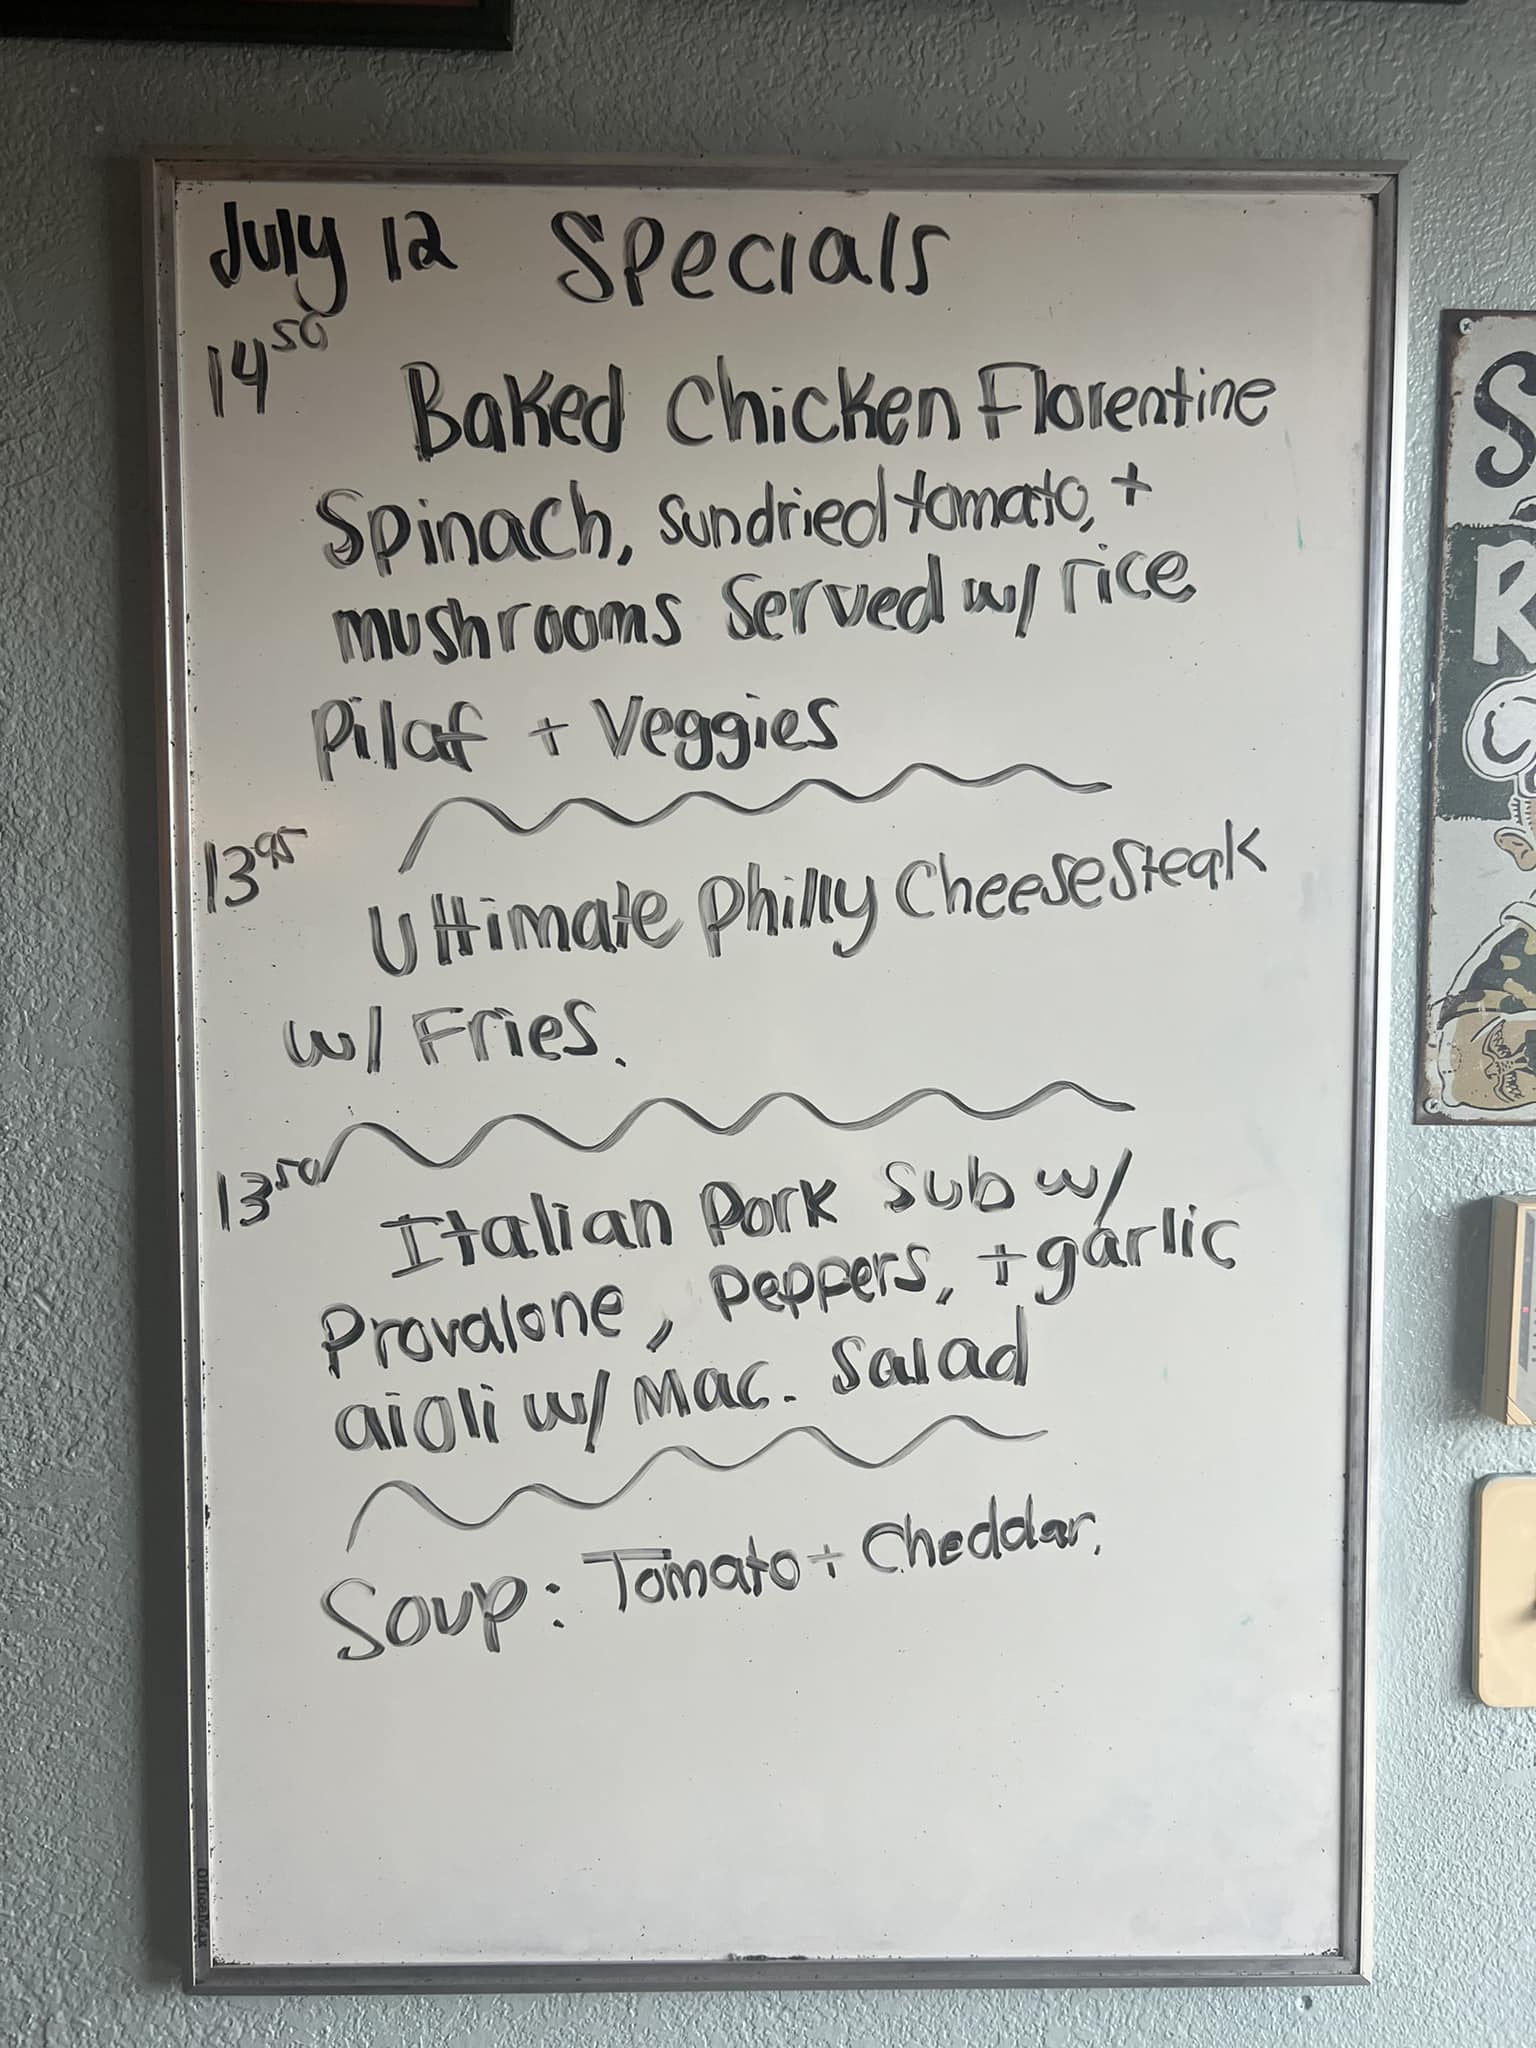 July 12 Specials
14 50
Baked Chicken Florentine
Spinach, sundried tomato, +
mushrooms Served w/ rice
Pilaf + Veggies
13 95
Ultimate Philly Cheesesteak
w/ Fries.
13 50
Italian Pork Sub w/
Provalone, Peppers, + garlic
aioli w/ Mac. Salad
Soup: Tomato + Cheddar.
OfficeMax